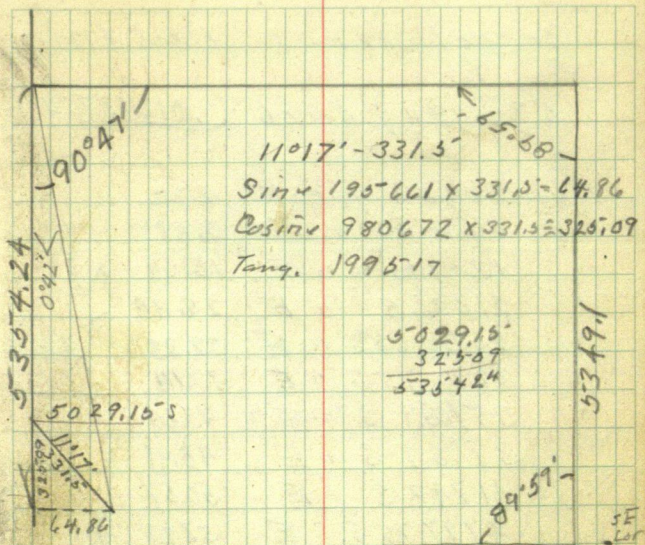 90°47'
89°59'
11°17' - 331.5
Sine 195661 x 331.5 = 64.86
Cosine 980672 x 331.5 = 325.09
Tang. 199517
5354.24
0°42'
5029.15
32509
535424
5349.1
5029.15 S
11°17'
331.5
325.09
64.86
89°59'
SE
Cor